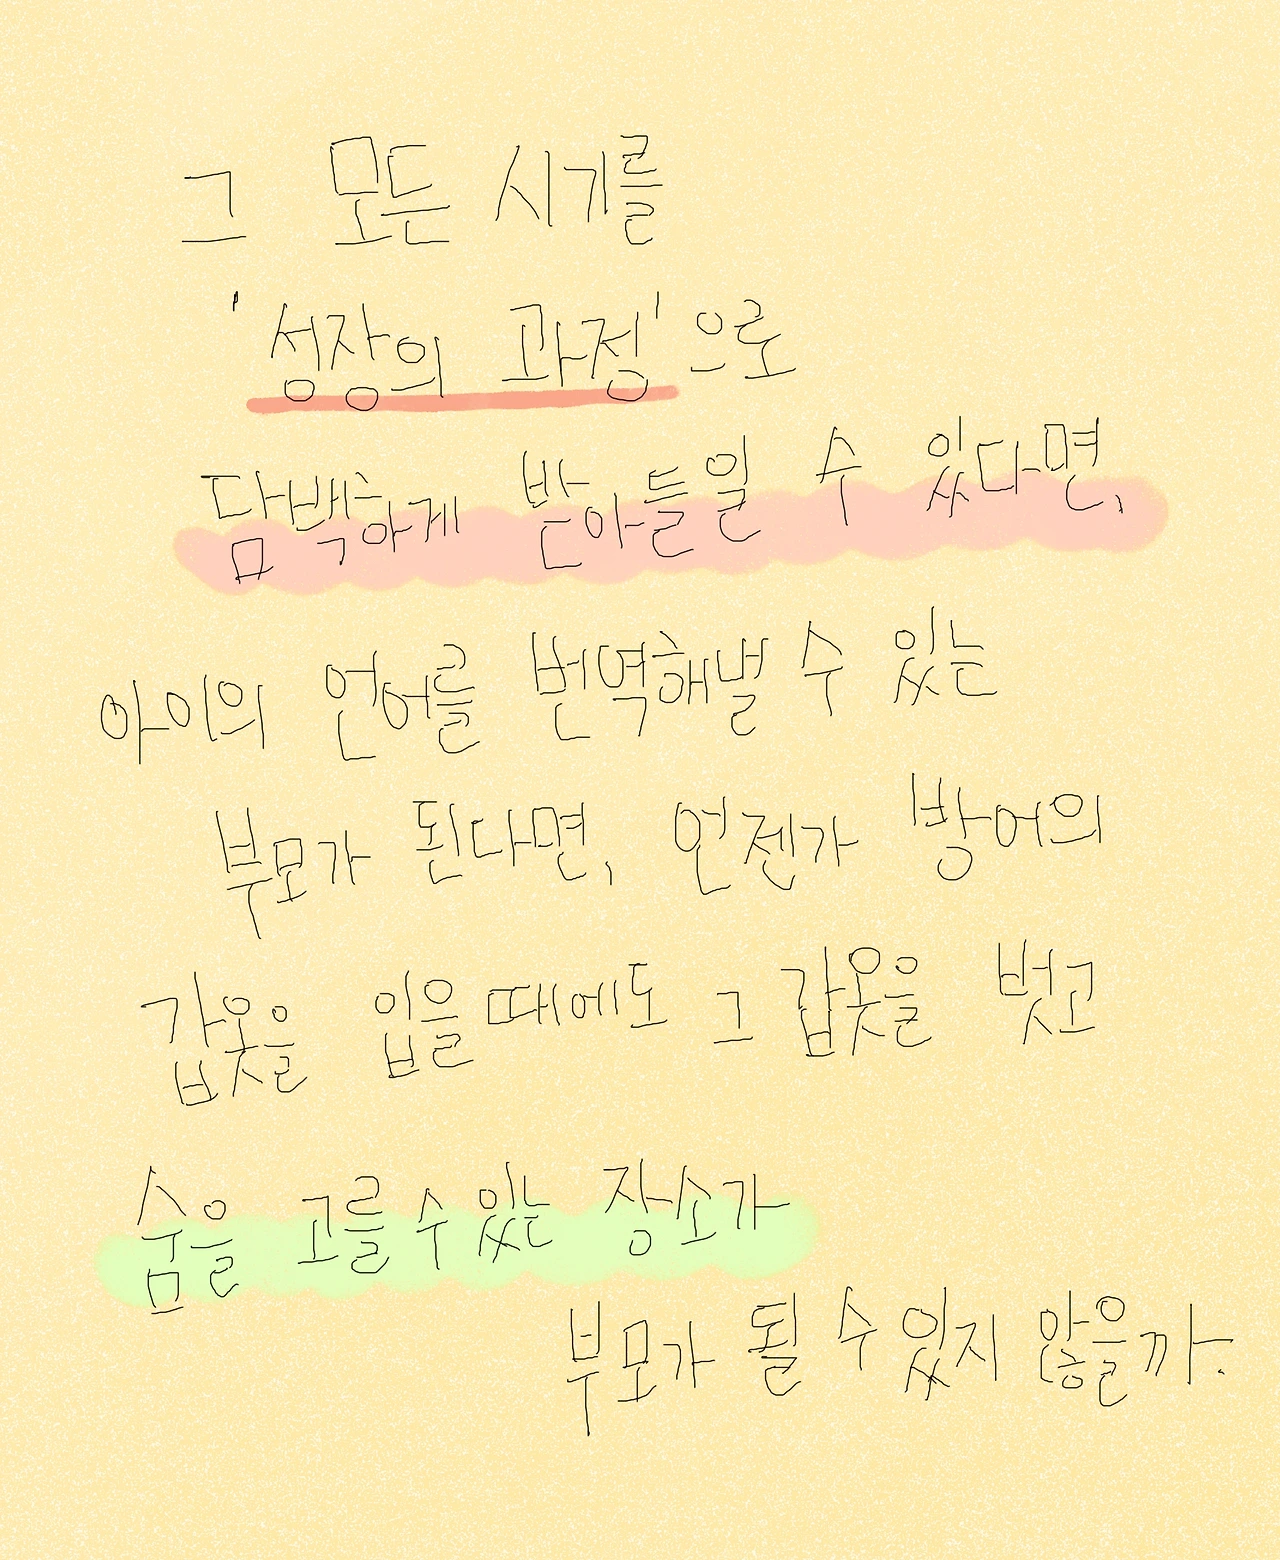 그 모든 시기를
'성장의 과정'으로
담백하게 받아들일 수 있다면,
아이의 언어를 번역해낼 수 있는
부모가 된다면, 언젠가 방어의
갑옷을 입을때에도 그 갑옷을 벗고
숨을 고를 수 있는 장소가
부모가 될 수 있지 않을까.